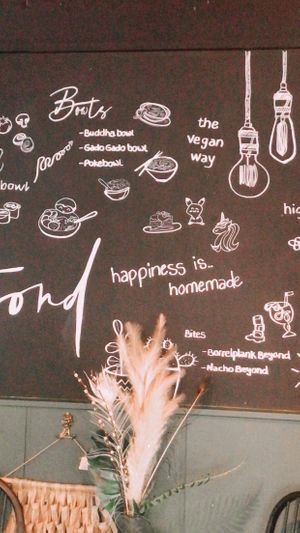 Boots
- Buddha bowl
- Gado Gado bowl
- Pokebowl
bowl
the
vegan
way
hi
happiness is..
homemade
Bites
- Borrelplank Beyond
- Nacho Beyond